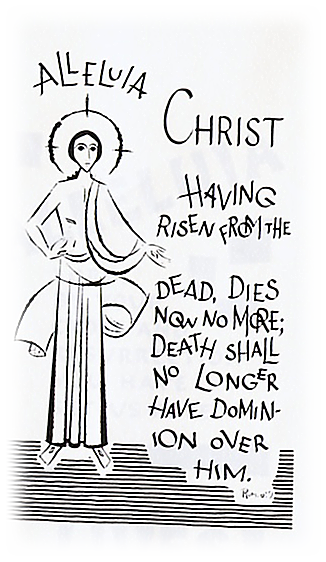 ALLELUIA
CHRIST
HAVING
RISEN FROM THE
DEAD, DIES
NOW NO MORE;
DEATH SHALL
NO LONGER
HAVE DOMIN-
ION OVER
HIM.